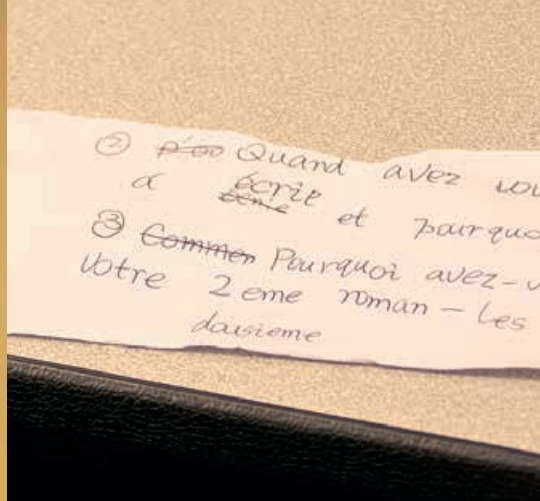 ② Quand avez vou
a écrit et pourquo
③ Commen Pourquoi avez-v
Votre 2 eme roman - Les
dousieme